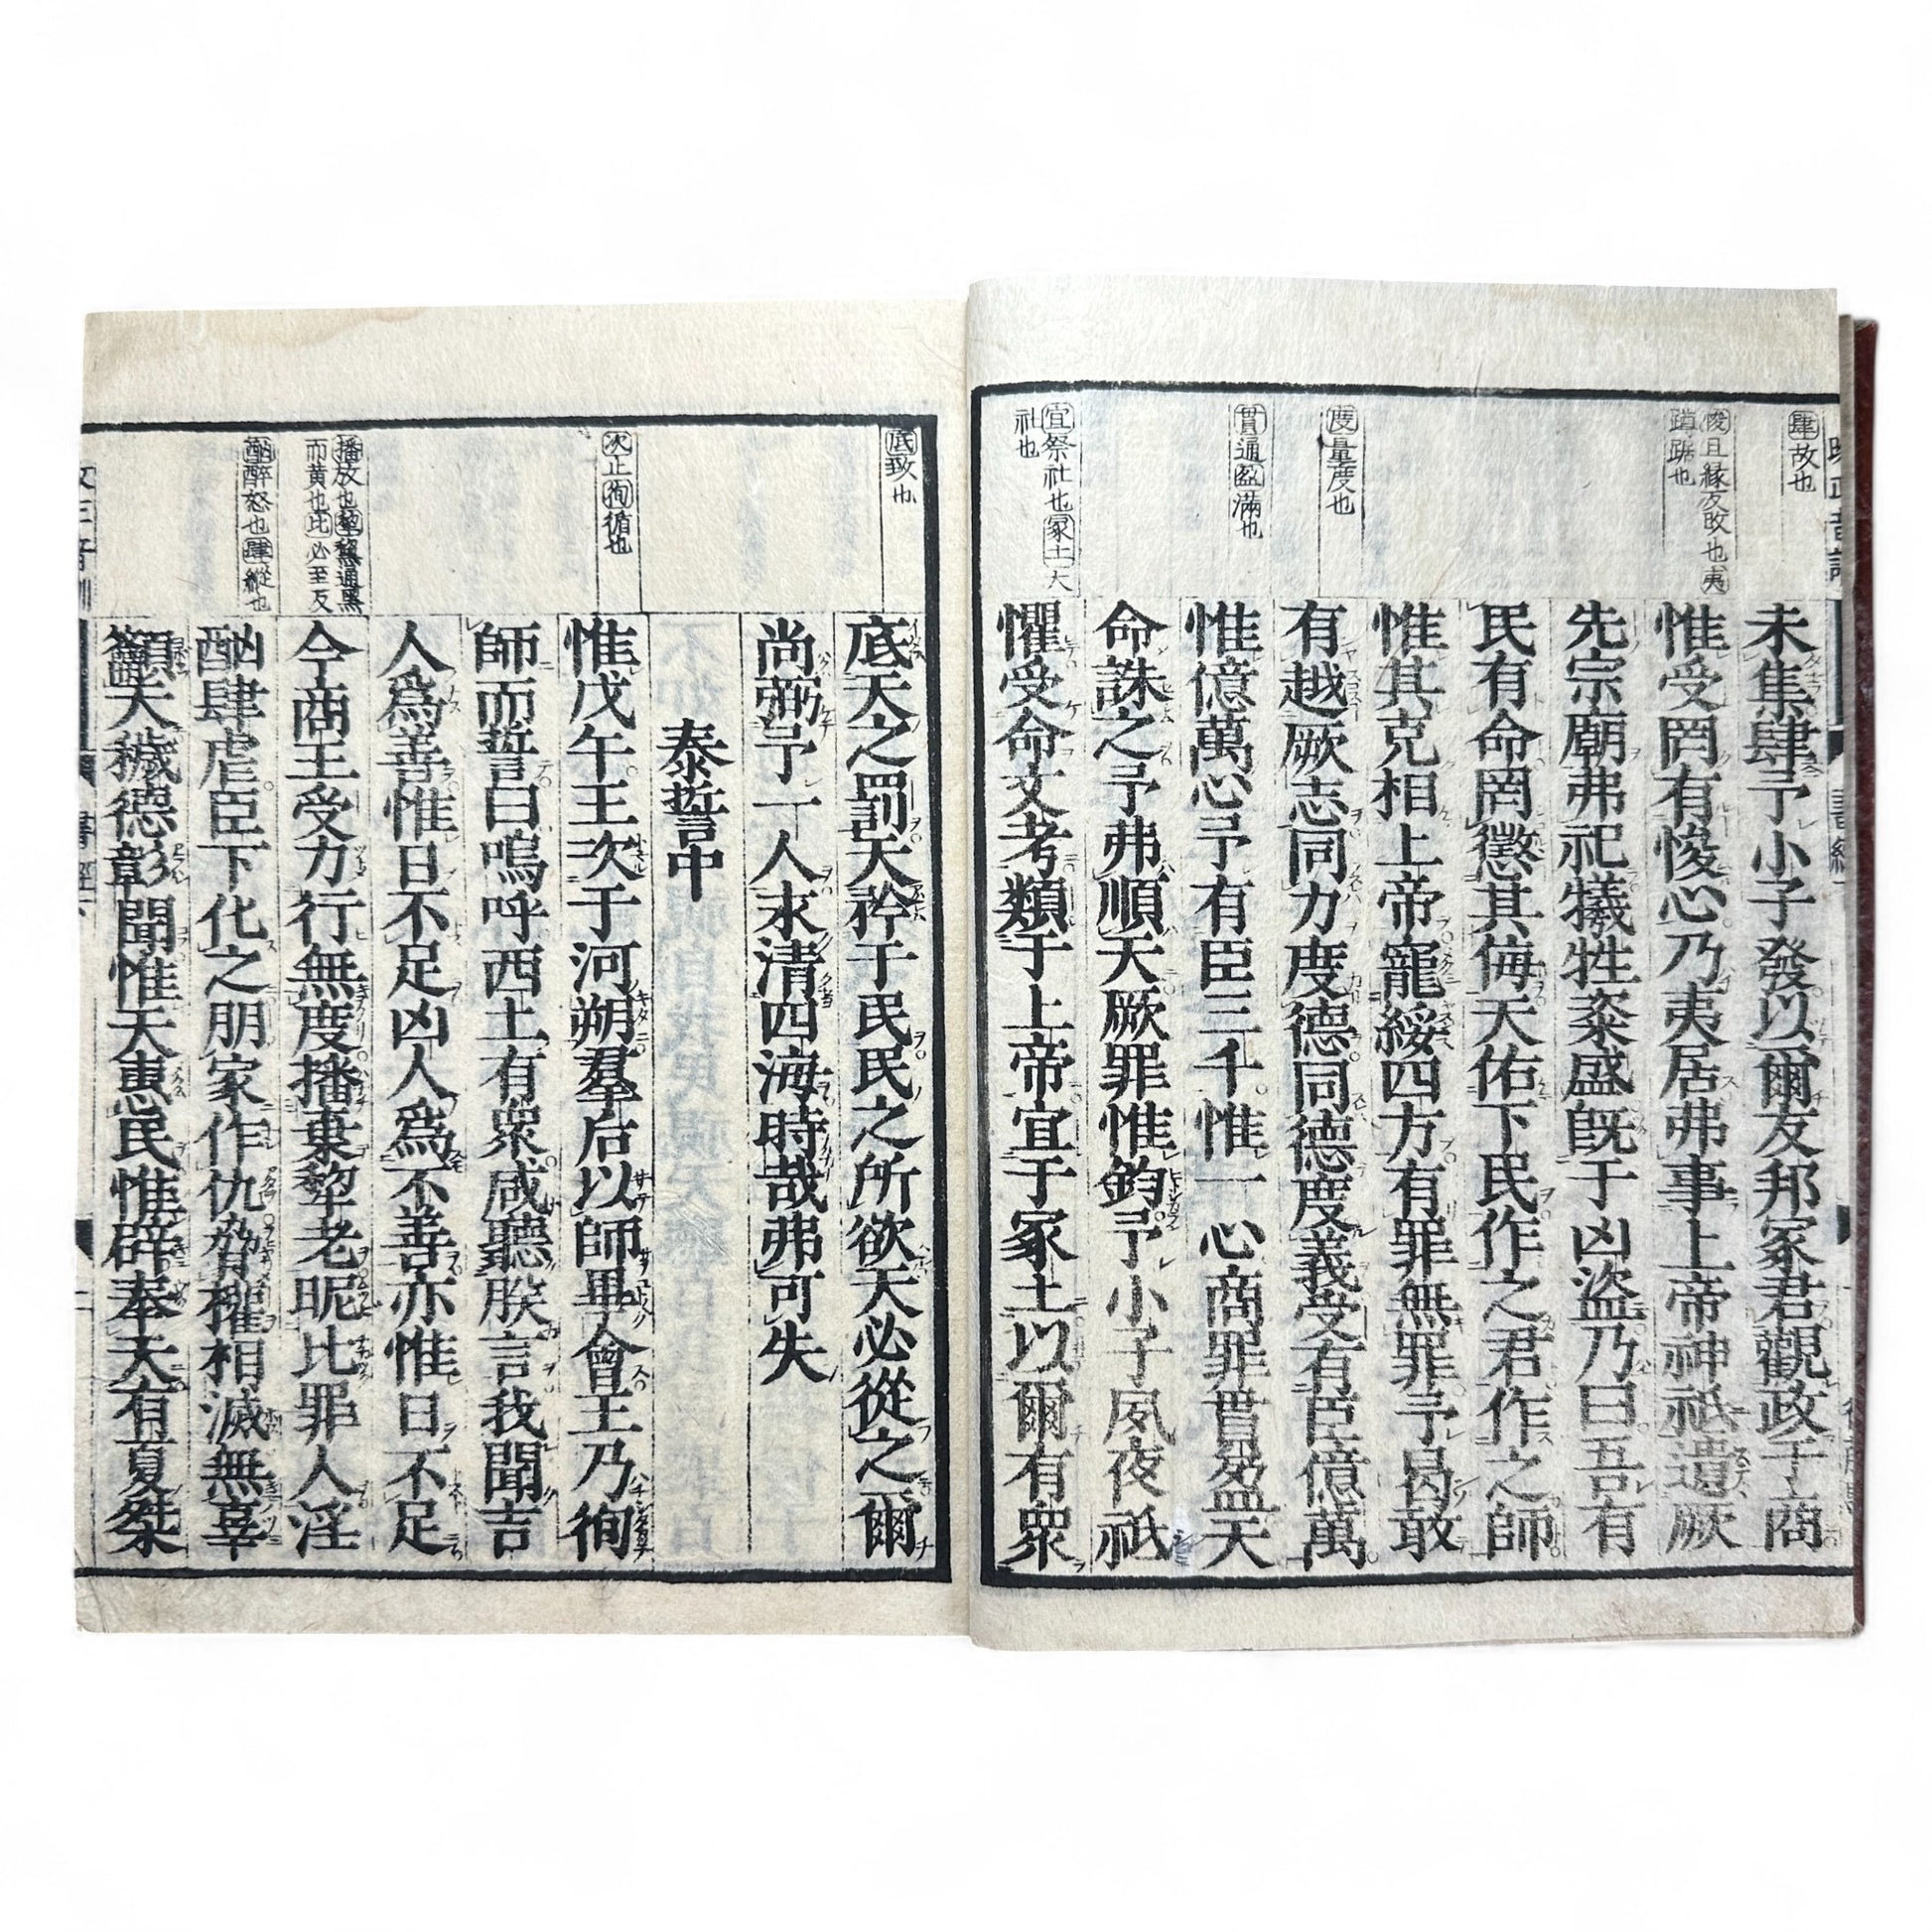 肆故也
悛且緣反改也夷
蹲踞也
度量度也
貫通盈滿也
宜祭社也冢土大
社也
未集肆予小子發以爾友邦冢君觀政于商
惟受罔有悛心乃夷居弗事上帝神祇遺厥
先宗廟弗祀犧牲粢盛旣于凶盜乃曰吾有
民有命罔懲其侮天佑下民作之君作之師
惟其克相上帝寵綏四方有罪無罪予曷敢
有越厥志同力度德同德度義受有臣億萬
惟億萬心予有臣三千惟一心商罪貫盈天
命誅之予弗順天厥罪惟鈞予小子夙夜祗
懼受命文考類于上帝宜于冢土以爾有衆
底致也
次止徇循也
播放也犂黎通黑
而黄也比必至反
酗醉怒也肆縱也
底天之罰天矜于民民之所欲天必從之爾
尚弼予一人永清四海時哉弗可失
泰誓中
惟戊午王次于河朔羣后以師畢會王乃徇
師而誓曰嗚呼西土有衆咸聽朕言我聞吉
人爲善惟日不足凶人爲不善亦惟日不足
今商王受力行無度播棄犂老昵比罪人淫
酗肆虐臣下化之朋家作仇脅權相滅無辜
籲天穢德彰聞惟天惠民惟辟奉天有夏桀